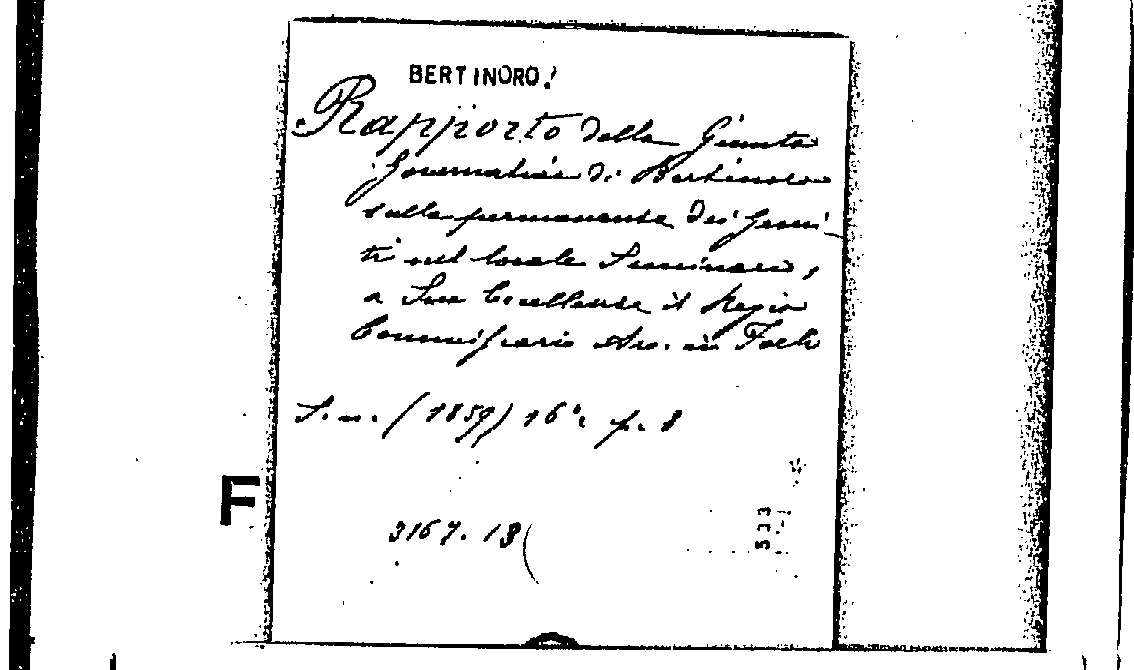 BERTINORO.
Rapporto della Giunta
Governativa di Bertinoro
sulla permanenza dei Gesui-
ti nel locale Seminario,
a Sua Eccellenza il Regio
Commissario Str. in Forlì
S. n. (1859) 16°. p. 8
3167. 18
533
F